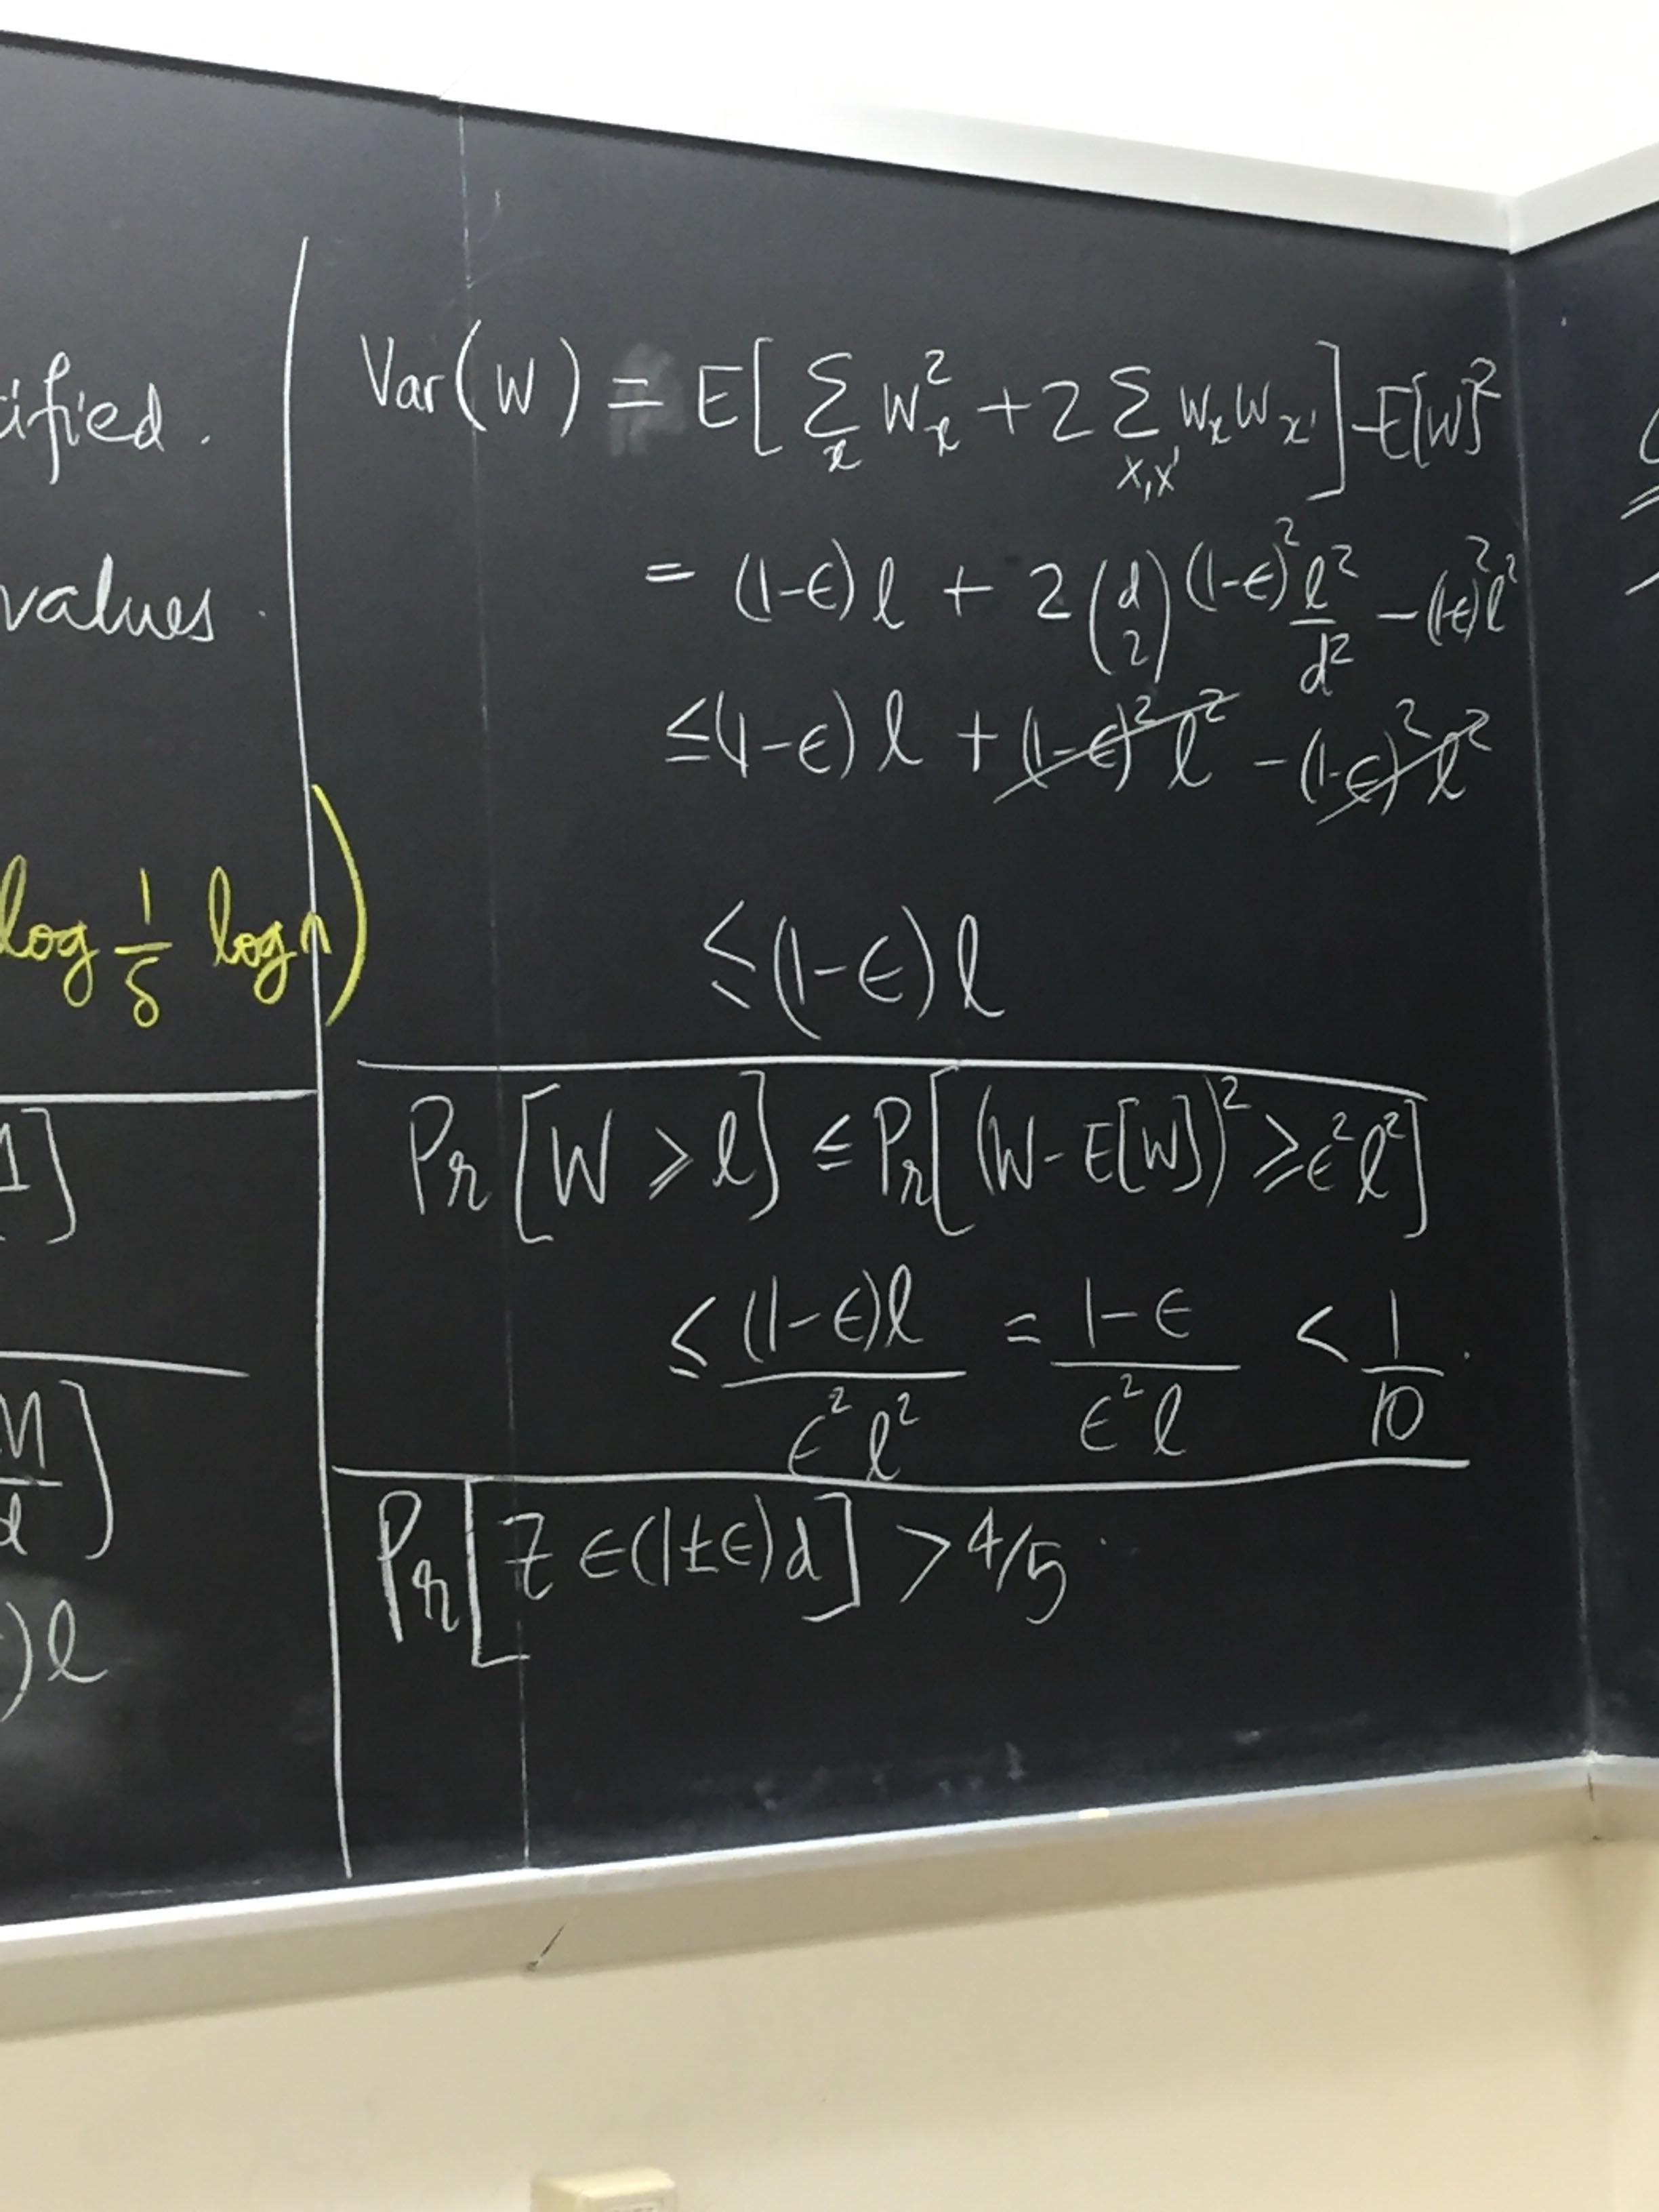 ified.
values.
log 1/δ log n)
1]
M/d]
)l
Var(W) = E[∑_x W_x^2 + 2 ∑_{x,x'} W_x W_{x'}] - E[W]^2
= (1-ϵ)l + 2 (d 2) (1-ϵ)^2 l^2/d^2 - (1-ϵ)^2 l^2
≤ (1-ϵ)l + (1-ϵ)^2 l^2 - (1-ϵ)^2 l^2
≤ (1-ϵ)l
Pr[W ≥ l] ≤ Pr[(W - E[W])^2 ≥ ϵ^2 l^2]
≤ (1-ϵ)l / ϵ^2 l^2 = 1-ϵ / ϵ^2 l < 1/10.
Pr[Z ∈ (1±ϵ)d] > 4/5